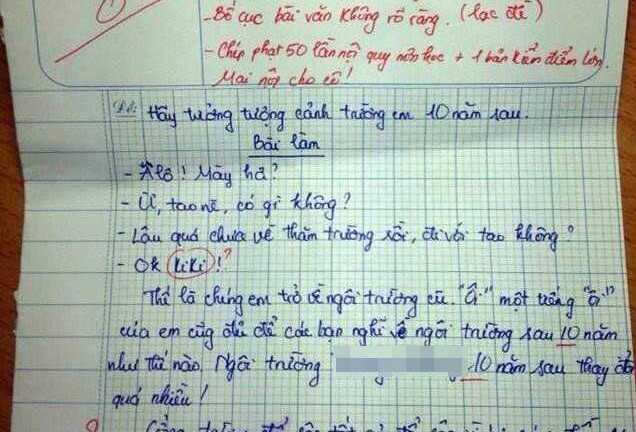 - Bố cục bài văn không rõ ràng. (lạc đề)
- Chép phạt 50 lần nội quy môn học + 1 bản kiểm điểm lớn.
Mai nộp cho cô!
Đề: Hãy tưởng tượng cảnh trường em 10 năm sau.
Bài làm
- Alô! Mày hả?
- Ừ, tao nè, có gì không?
- Lâu quá chưa về thăm trường rồi, đi với tao không?
- Ok kiki!?
Thế là chúng em trở về ngôi trường cũ. "Ôi" một tiếng "ôi"
của em cũng đủ để các bạn nghĩ về ngôi trường sau 10 năm
như thế nào. Ngôi trường 10 năm sau thay đổi
quá nhiều!